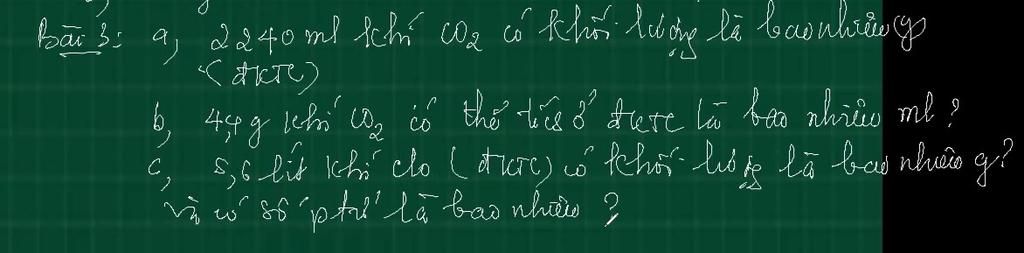 Bài 3: a, 2240 ml khí CO2 có khối lượng là bao nhiêu g
(đktc)
b, 4,4 g khí CO2 có thể tích ở đktc là bao nhiêu ml?
c, 5,6 lít khí clo (đktc) có khối lượng là bao nhiêu g?
và có số ptử là bao nhiêu?